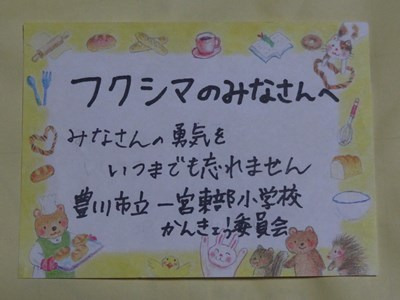 フクシマのみなさんへ
みなさんの勇気を
いつまでも忘れません
豊川市立一宮東部小学校
かんきょう委員会